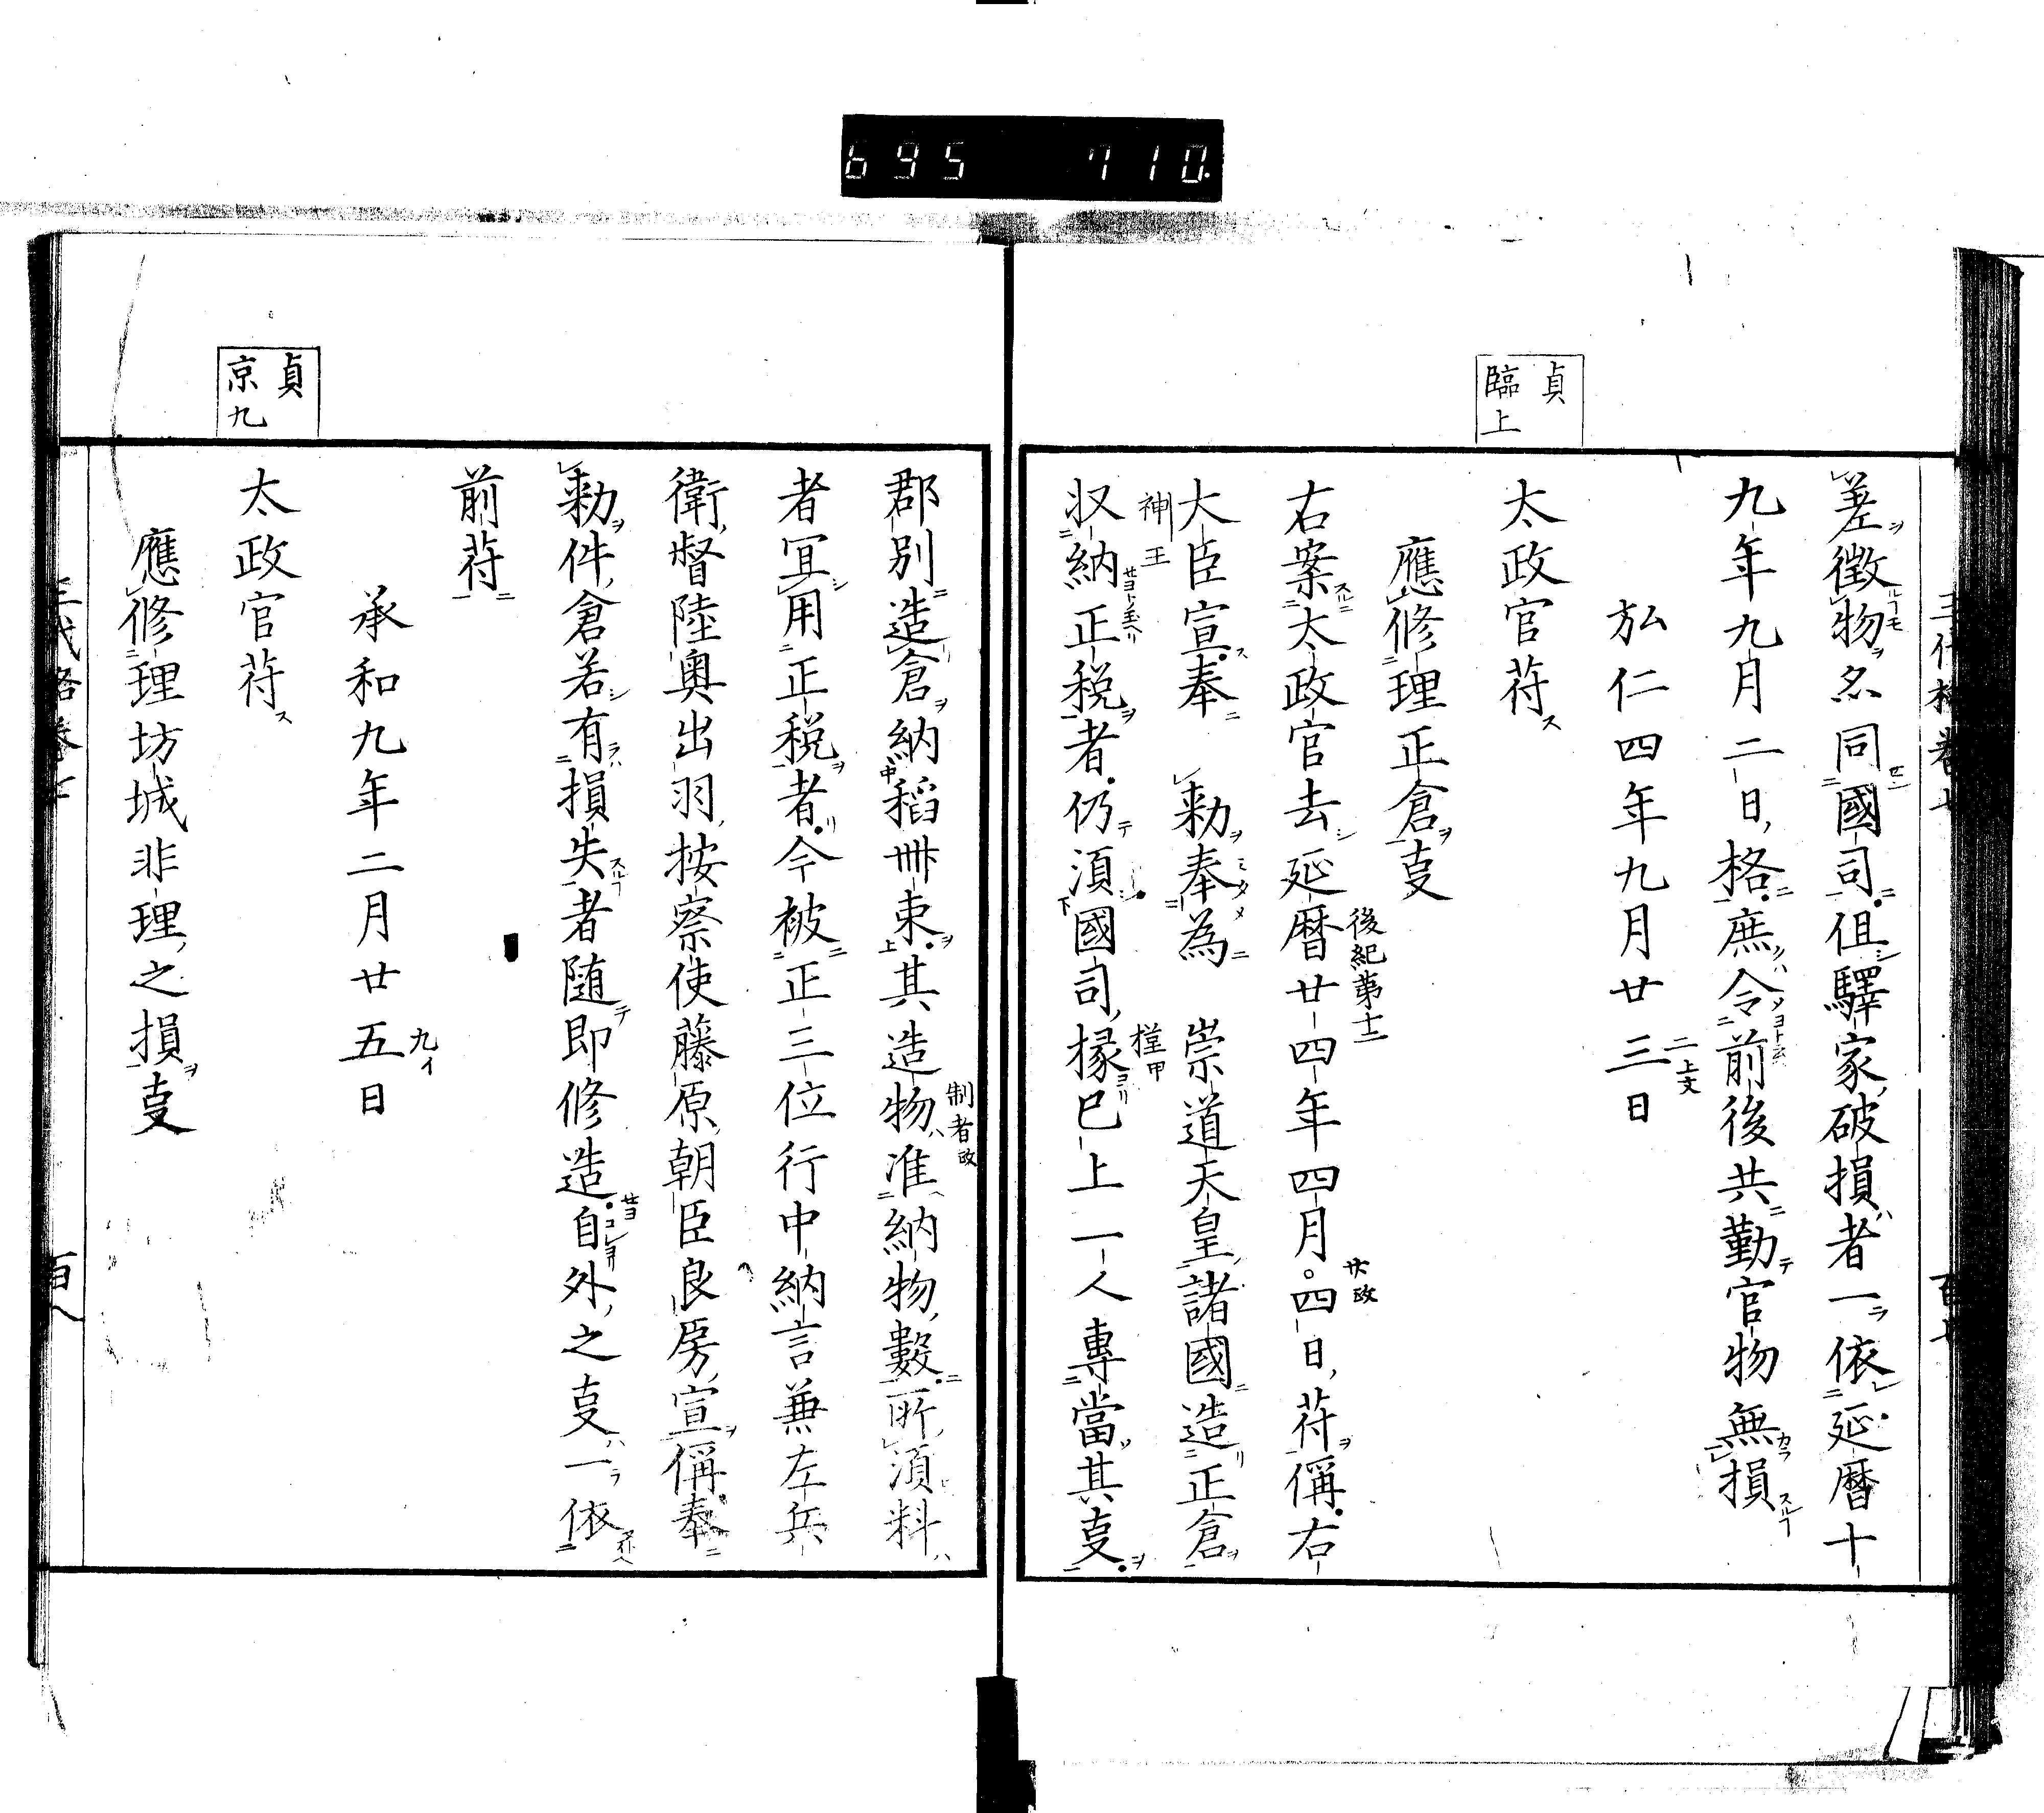 695 710.
貞
臨上
差徴物名同國司但驛家破損者一依延暦十
九年九月二日格庶令前後共勤官物無損
弘仁四年九月廿三日
二上文
太政官苻
應修理正倉㕝
右案太政官去延暦廿四年四月四日苻偁右
後紀第十二
廿政
大臣宣奉　勅奉為　崇道天皇諸國造正倉
神王
収納正税者仍湏國司掾已上一人專當其㕝
樘甲
郡別造倉納稲卌束其造物准納物數所湏料
制者政
者宜用正税者今被正三位行中納言兼左兵
衛督陸奥出羽按察使藤原朝臣良房宣偁奉
勅件倉若有損失者随即修造自外之㕝一依
前苻
承和九年二月廿五日
九イ
貞
京九
太政官苻
應修理坊城非理之損㕝